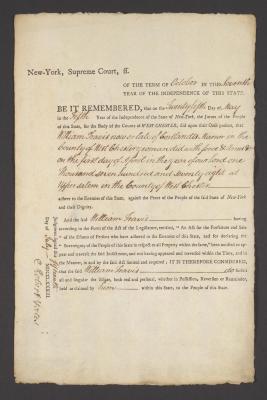 New-York, Supreme Court, ff.
OF THE TERM OF October IN THE Seventh
YEAR OF THE INDEPENDENCE OF THIS STATE.
BE IT REMEMBERED, that on the Twenty fifth Day of May
in the Fifth Year of the Independence of the State of New-York, the Jurors of the People
of this State, for the Body of the County of WEST-CHESTER, did upon their Oath present, that
William Travis now or late of Cortlandts Manor in the
County of West Chester yeoman did with force & arms &c
on the first day of in the year of our Lord one
Thousand seven hundred and seventy eight at
Upper Salem in the County of West Chester
adhere to the Enemies of this State, against the Peace of the People of the State of New-York
and their Dignity.
And the said William Travis having
according to the Form of the Act of the Legislature, entitled, "An Act for the Forfeiture and Sale
" of the Estates of Persons who have adhered to the Enemies of this State, and for declaring the
" Sovereignty of the People of this State in respect to all Property within the same," been notified to ap-
pear and traverse the said Indictment, and not having appeared and traversed within the Time, and in
the Manner, in and by the said Act limited and required; IT IS THEREFORE CONSIDERED,
that the said William Travis do forfeit
all and singular the Estate, both real and personal, whether in Possession, Reversion or Remainder,
held or claimed by him within this State, to the People of this State.
Day of July MDCCLXXXIII
Robert Yates